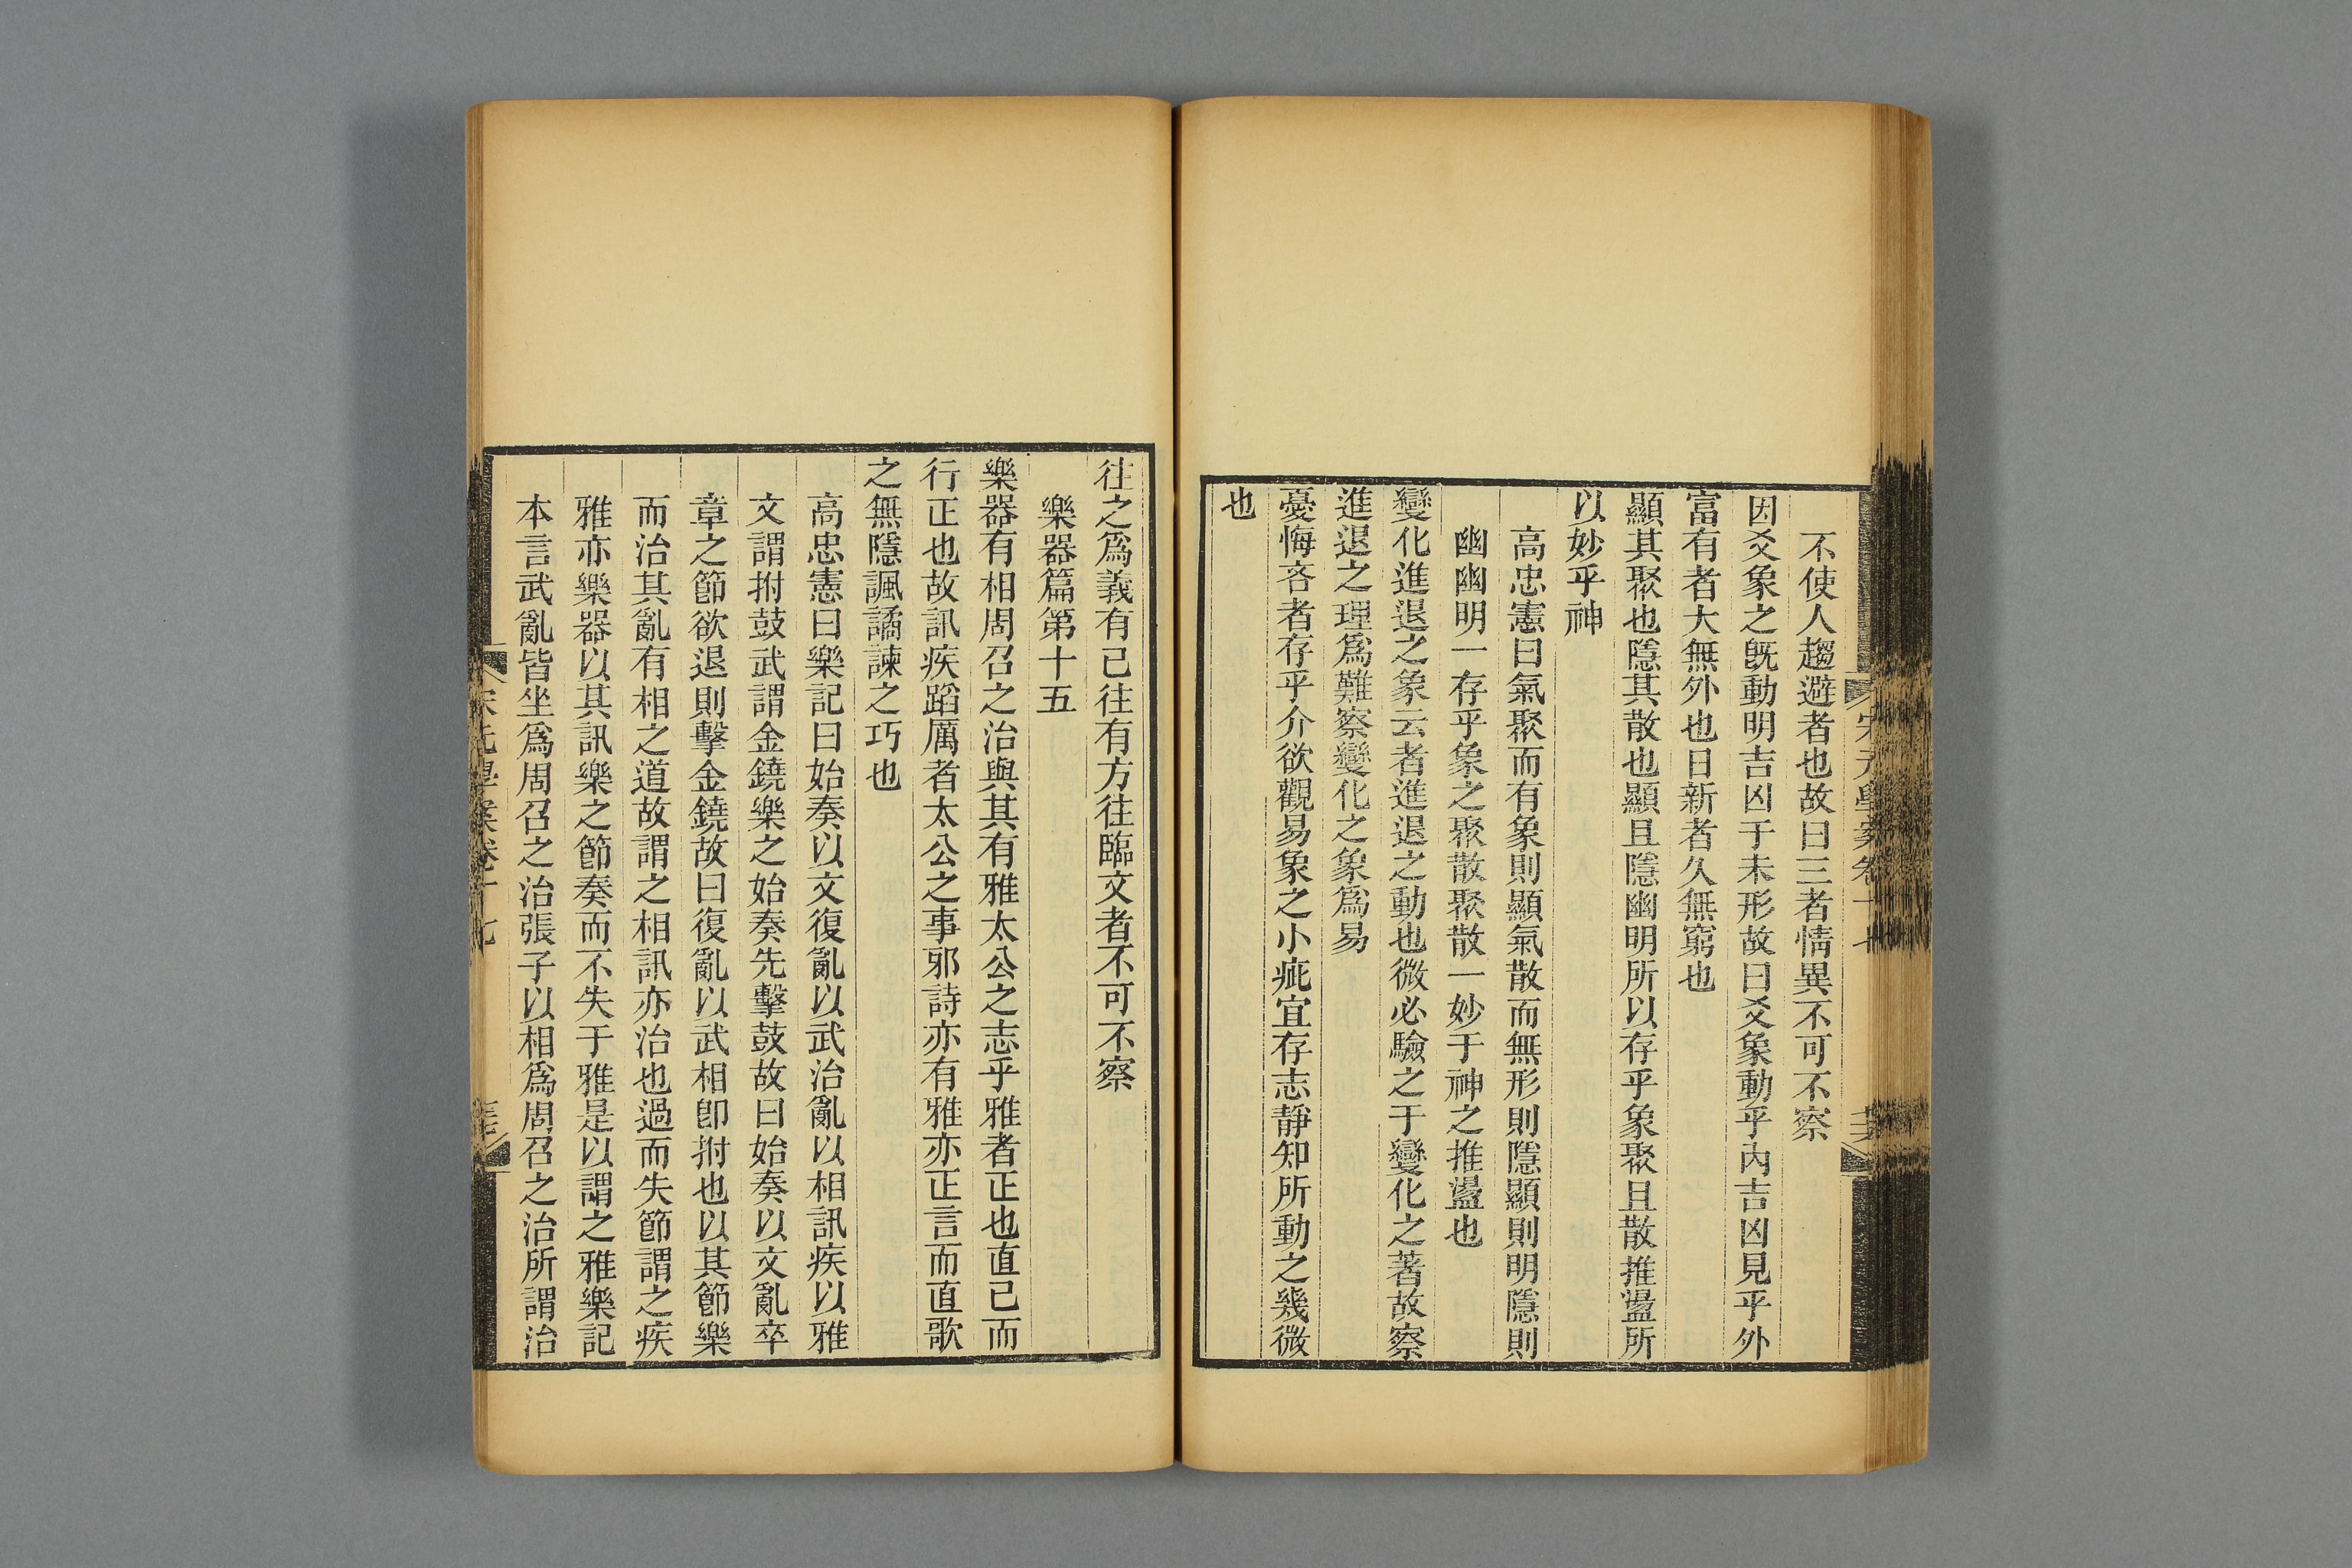 不使人趨避者也故曰三者情異不可不察
因爻象之旣動明吉凶于未形故曰爻象動乎內吉凶見乎外
富有者大無外也日新者久無窮也
顯其聚也隱其散也顯且隱幽明所以存乎象聚且散推盪所
以妙乎神
高忠憲曰氣聚而有象則顯氣散而無形則隱顯則明隱則
幽幽明一存乎象之聚散聚散一妙于神之推盪也
變化進退之象云者進退之動也微必驗之于變化之著故察
進退之理爲難察變化之象爲易
憂悔吝者存乎介欲觀易象之小疵宜存志靜知所動之幾微
也
往之爲義有已往有方往臨文者不可不察
樂器篇第十五
樂器有相周召之治與其有雅太公之志乎雅者正也直己而
行正也故訊疾蹈厲者太公之事邪詩亦有雅亦正言而直歌
之無隱諷譎諫之巧也
高忠憲曰樂記曰始奏以文復亂以武治亂以相訊疾以雅
文謂拊鼓武謂金鐃樂之始奏先擊鼓故曰始奏以文亂卒
章之節欲退則擊金鐃故曰復亂以武相卽拊也以其節樂
而治其亂有相之道故謂之相訊亦治也過而失節謂之疾
雅亦樂器以其訊樂之節奏而不失于雅是以謂之雅樂記
本言武亂皆坐爲周召之治張子以相爲周召之治所謂治
宋元學案卷十七